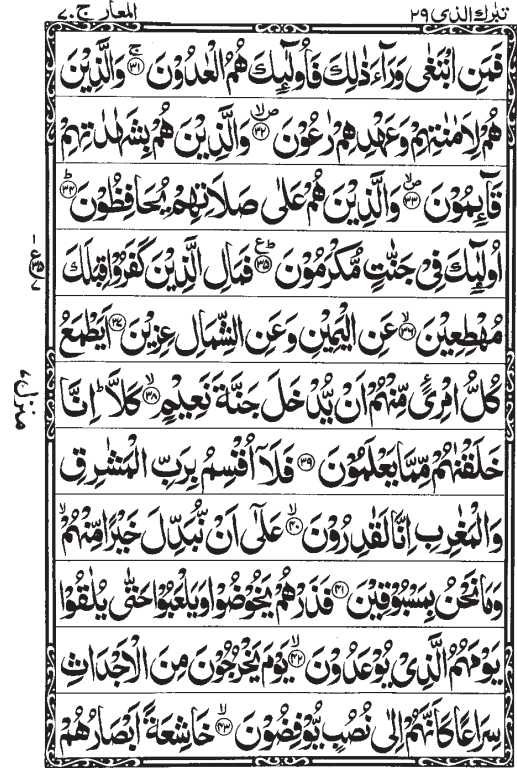 تبٰرك الذی ٢٩
المعارج ٧٠
فَمَنِ ابْتَغٰى وَرَآءَ ذٰلِكَ فَاُولٰٓئِكَ هُمُ الْعٰدُوْنَ ۚ﴿٣١﴾ وَالَّذِيْنَ
هُمْ لِاَمٰنٰتِهِمْ وَعَهْدِهِمْ رٰعُوْنَ ﴿٣٢﴾ وَالَّذِيْنَ هُمْ بِشَهٰدٰتِهِمْ
قَآئِمُوْنَ ﴿٣٣﴾ وَالَّذِيْنَ هُمْ عَلٰى صَلَاتِهِمْ يُحَافِظُوْنَ ؕ﴿٣٤﴾
اُولٰٓئِكَ فِىْ جَنّٰتٍ مُّكْرَمُوْنَ ؕ﴿٣٥﴾ فَمَالِ الَّذِيْنَ كَفَرُوْا قِبَلَكَ
مُهْطِعِيْنَ ۙ﴿٣٦﴾ عَنِ الْيَمِيْنِ وَعَنِ الشِّمَالِ عِزِيْنَ ﴿٣٧﴾ اَيَطْمَعُ
كُلُّ امْرِئٍ مِّنْهُمْ اَنْ يُّدْخَلَ جَنَّةَ نَعِيْمٍ ۙ﴿٣٨﴾ كَلَّا ؕ اِنَّا
خَلَقْنٰهُمْ مِّمَّا يَعْلَمُوْنَ ﴿٣٩﴾ فَلَاۤ اُقْسِمُ بِرَبِّ الْمَشٰرِقِ
وَالْمَغٰرِبِ اِنَّا لَقٰدِرُوْنَ ۙ﴿٤٠﴾ عَلٰٓى اَنْ نُّبَدِّلَ خَيْرًا مِّنْهُمْ ۙ
وَمَا نَحْنُ بِمَسْبُوْقِيْنَ ﴿٤١﴾ فَذَرْهُمْ يَخُوْضُوْا وَيَلْعَبُوْا حَتّٰى يُلٰقُوْا
يَوْمَهُمُ الَّذِىْ يُوْعَدُوْنَ ۙ﴿٤٢﴾ يَوْمَ يَخْرُجُوْنَ مِنَ الْاَجْدَاثِ
سِرَاعًا كَاَنَّهُمْ اِلٰى نُصُبٍ يُّوْفِضُوْنَ ۙ﴿٤٣﴾ خَاشِعَةً اَبْصَارُهُمْ
منزل ٧